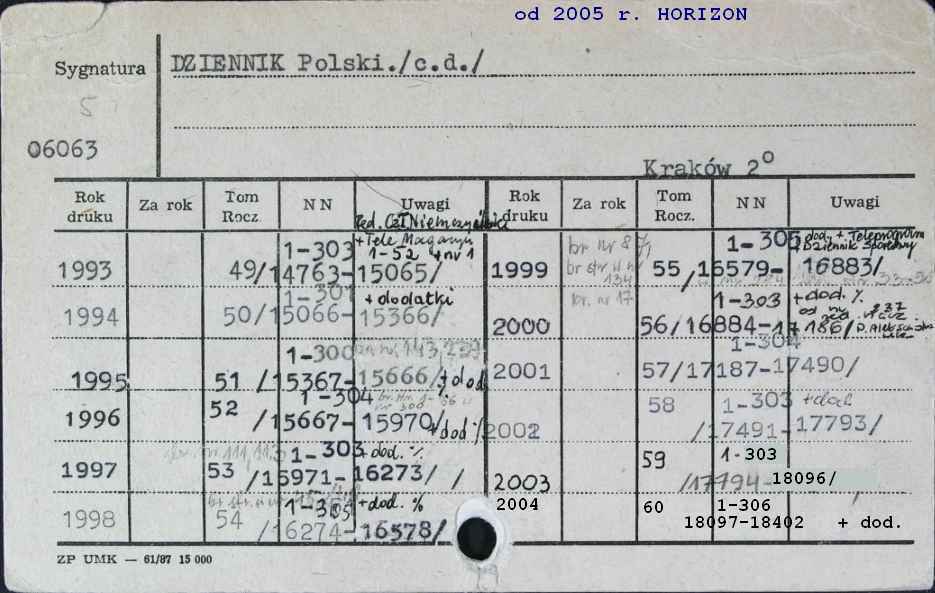 od 2005 r. HORIZON
Sygnatura DZIENNIK Polski./c.d./
5
06063
Kraków 2°
Rok druku Za rok Tom Rocz. N N Uwagi Rok druku Za rok Tom Rocz. N N Uwagi
1993 49/ 1-303 14763-15065/ + Tele Magazyn 1-52 + nr 1
1994 50/ 1-301 15066-15366/ + dodatki
1995 51 / 1-300 15367-15666/ + dod br nr 143, 239
1996 52 / 1-304 15667-15970/ + dod %
1997 53 / 1-303 15971-16273/ / + dod. % br nr 111, 113
1998 54 / 16274-16578/ + dod. %
1999 br nr 8 br str w nr 134 br. nr 17 55 / 1-305 16579-16883/ dod. + Teleprogram Dziennik Sportowy
2000 56/ 1-303 16884-17186/ + dod. %
2001 57/ 1-304 17187-17490/
2002 58 / 1-303 17491-17793/ + dod
2003 59 / 1-303 17794-18096/
2004 60 1-306 18097-18402 + dod.
ZP UMK — 61/87 15 000